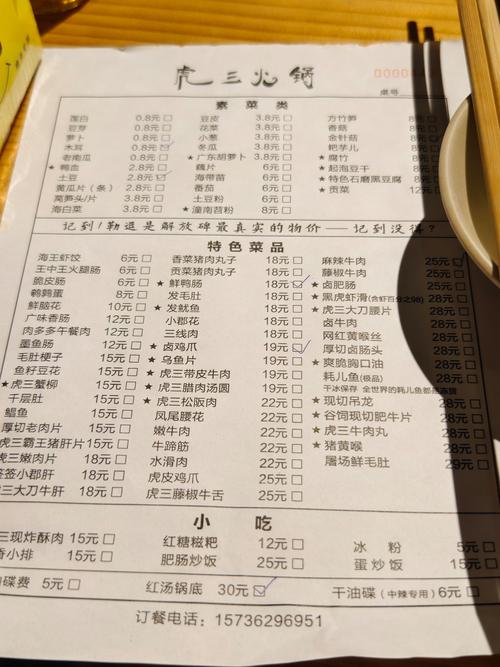 虎三火锅
0000
桌号
素菜类
莲白 0.8元□ 豆皮 3.8元□ 方竹笋 8元□
豆芽 0.8元□ 花菜 3.8元□ 香菇 8元□
萝卜 0.8元□ 小葱 3.8元□ 金针菇 8元□
木耳 0.8元☑ 冬瓜 3.8元□ 粑芋儿 8元□
老南瓜 0.8元□ ★广东胡萝卜 3.8元□ ★腐竹 8元□
★鸭血 2.8元□ 藕片 6元□ ★起泡豆干 8元□
土豆 2.8元☑ 海带苗 6元□ ★特色石磨黑豆腐 8元□
黄瓜片（条） 2.8元□ 番茄 6元□ ★贡菜 12元□
莴笋头/片 3.8元□ 土豆粉 6元□
海白菜 3.8元□ ★潼南苕粉 8元□
记到!勒逗是解放碑最真实的物价—记到没得?
特色菜品
海王虾饺 6元□ 香菜猪肉丸子 18元□ 麻辣牛肉 25元☑
王中王火腿肠 6元□ 贡菜猪肉丸子 18元□ 藤椒牛肉 25元□
脆皮肠 6元□ ★鲜鸭肠 18元☑ ★卤肥肠 25元□
鹌鹑蛋 8元□ 发毛肚 18元□ ★黑虎虾滑(含虾百分之98) 28元□
鲜脑花 10元□ ★发鱿鱼 18元□ ★虎三大刀腰片 28元□
广味香肠 12元□ 小郡花 18元□ 卤牛肉 28元□
肉多多午餐肉 12元□ 三线肉 18元□ 网红黄喉丝 28元□
墨鱼肠 12元□ ★卤鸡爪 19元☑ 厚切卤肠头 28元□
毛肚梗子 15元□ ★乌鱼片 19元□ ★爽脆胸口油 28元□
鱼籽豆花 15元□ ★虎三带皮牛肉 19元□ 耗儿鱼(极品) 28元□
★虎三蟹柳 15元□ ★虎三腊肉汤圆 19元□ 干冰保存 全世界的耗儿鱼都是冻货
千层肚 15元□ ★虎三松阪肉 22元□ ★现切吊龙 28元□
鲳鱼 15元□ 凤尾腰花 22元□ ★谷饲现切肥牛片 28元□
厚切老肉片 15元□ 嫩牛肉 22元□ ★虎三牛肉丸 28元□
虎三霸王猪肝片 15元□ 牛蹄筋 22元□ ★猪黄喉 28元□
虎三嫩肉片 18元□ 水滑肉 22元□ 屠场鲜毛肚 29元□
签签小郡肝 18元□ 虎皮鸡爪 25元□
虎三大刀牛肝 18元□ 虎三藤椒牛舌 25元□
小吃
三现炸酥肉 15元□ 红糖糍粑 12元□ 冰粉 5元□
香小排 15元□ 肥肠炒饭 25元□ 蛋炒饭 15元□
油碟费 5元□ 红汤锅底 30元☑ 干油碟（中辣专用）6元□
订餐电话：15736296951